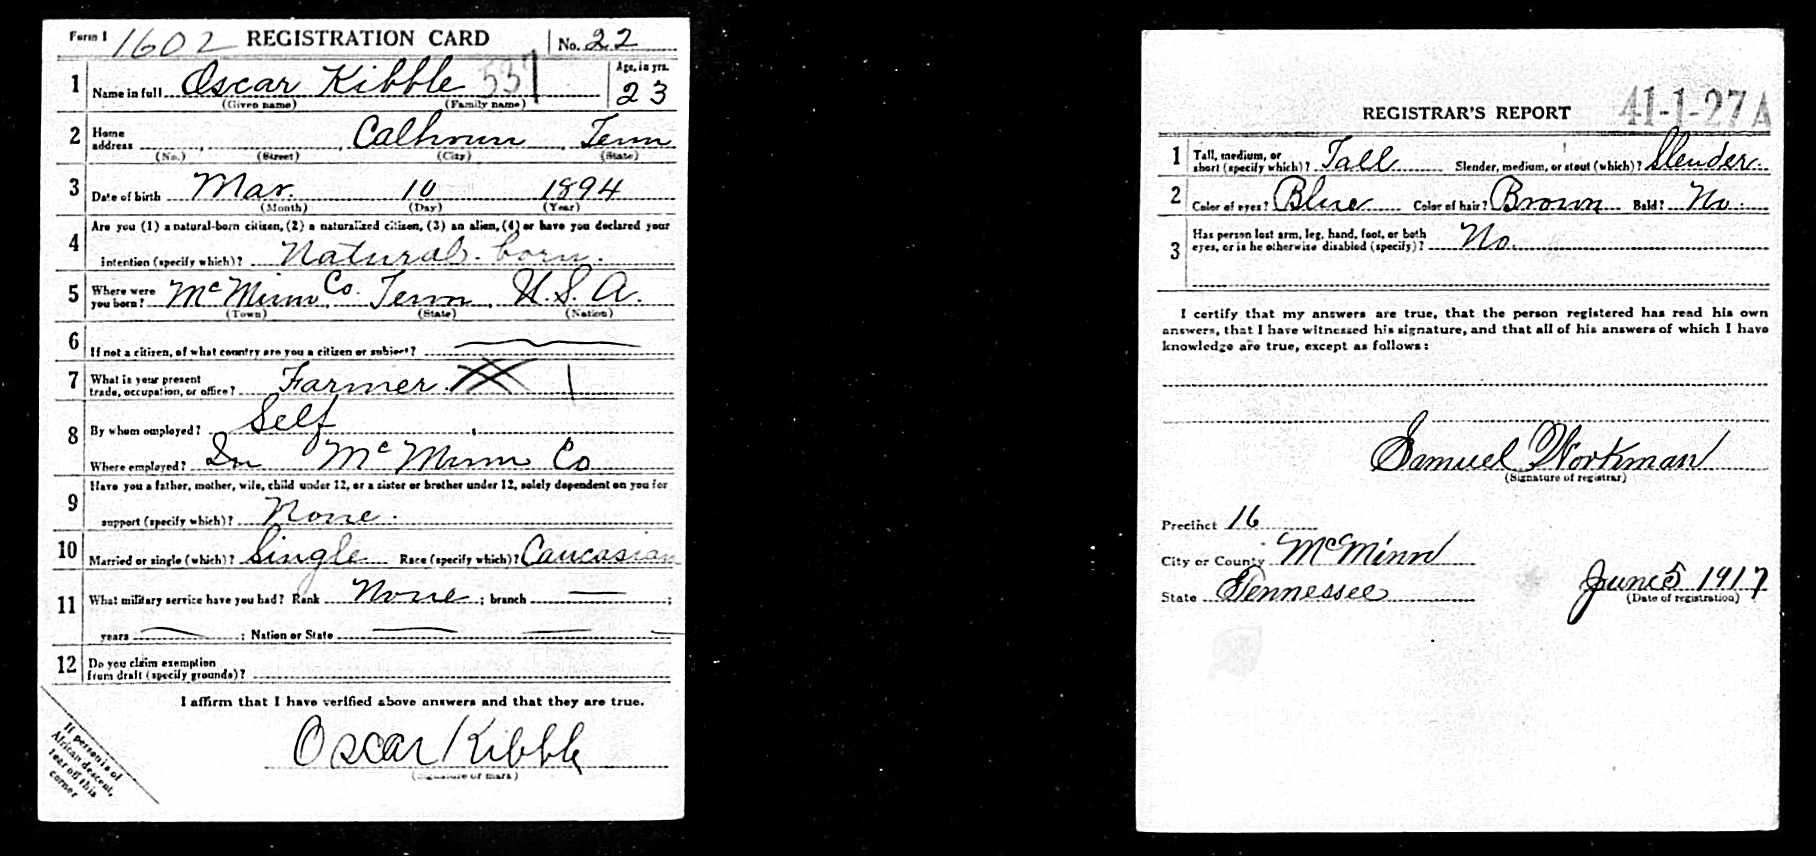 Form 1 1602 REGISTRATION CARD No. 22
1 Name in full Oscar Kibble 537 Age, in yrs. 23
(Given name) (Family name)
2 Home address Calhoun Tenn
(No.) (Street) (City) (State)
3 Date of birth Mar. 10 1894
(Month) (Day) (Year)
4 Are you (1) a natural-born citizen, (2) a naturalized citizen, (3) an alien, (4) or have you declared your
intention (specify which)? Natural-born.
5 Where were you born? McMinn Co. Tenn U.S.A.
(Town) (State) (Nation)
6 If not a citizen, of what country are you a citizen or subject?
7 What is your present trade, occupation, or office? Farmer.
8 By whom employed? Self
Where employed? In McMinn Co
9 Have you a father, mother, wife, child under 12, or a sister or brother under 12, solely dependent on you for
support (specify which)? None.
10 Married or single (which)? Single Race (specify which)? Caucasian
11 What military service have you had? Rank None ; branch ;
years ; Nation or State
12 Do you claim exemption from draft (specify grounds)?
I affirm that I have verified above answers and that they are true.
Oscar Kibble
(Signature or mark)
If person is of
African descent,
tear off this
corner
REGISTRAR'S REPORT 41-1-27 A
1 Tall, medium, or short (specify which)? Tall Slender, medium, or stout (which)? Slender.
2 Color of eyes? Blue Color of hair? Brown Bald? No.
3 Has person lost arm, leg, hand, foot, or both eyes, or is he otherwise disabled (specify)? No.
I certify that my answers are true, that the person registered has read his own
answers, that I have witnessed his signature, and that all of his answers of which I have
knowledge are true, except as follows:
Samuel Workman
(Signature of registrar)
Precinct 16
City or County McMinn
State Tennessee June 5 1917
(Date of registration)